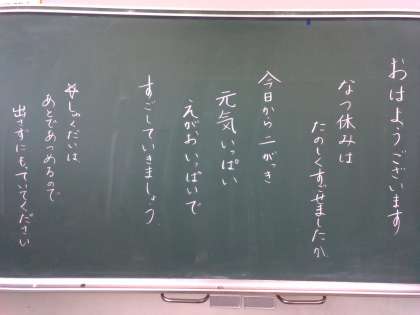 おはようございます
なつ休みは
たのしくすごせましたか
今日から二がっき
元気いっぱい
えがおいっぱいで
すごしていきましょう
☆しゅくだいは
あとであつめるので
出さずにもっていてください